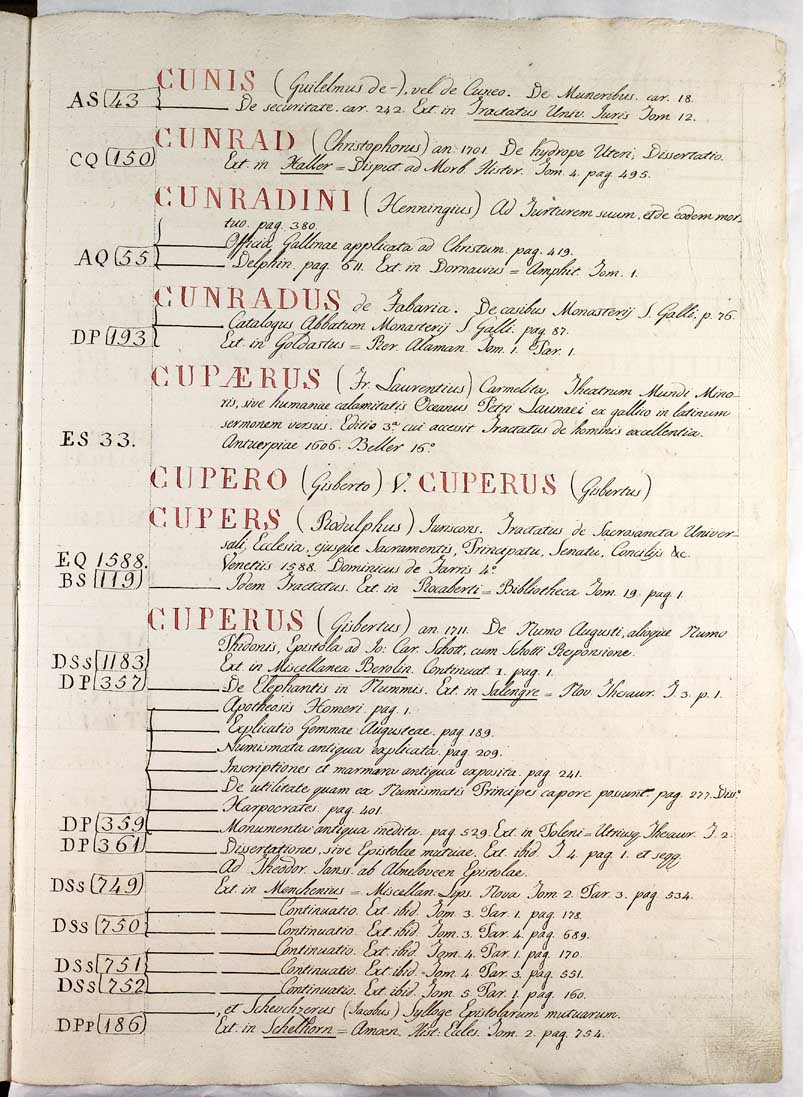 CUNIS (Guilelmus de-), vel de Cuneo. De Muneribus. car. 18.
AS 43 De securitate. car. 242. Ext. in Tractatus Univ. Iuris Tom. 12.
CUNRAD (Christophorus) an. 1701. De hydrope Uteri, Dissertatio.
CQ 150 Ext. in Haller = Disput. ad Morb. Histor. Tom. 4. pag. 495.
CUNRADINI (Henningius) Ad Turturem suum, et de eodem mor-
tuo. pag. 380.
Officia Gallinae applicata ad Christum. pag. 419.
AQ 55 Delphin. pag. 611. Ext. in Dornavius = Amphit. Tom. 1.
CUNRADUS de Fabaria. De casibus Monasterij S. Galli. p. 76.
Catalogus Abbatum Monasterij S. Galli. pag. 87.
DP 193 Ext. in Goldastus = Rer. Alaman. Tom. 1. Par. 1.
CUPÆRUS (Fr. Laurentius) Carmelita. Theatrum Mundi Mino-
ris, sive humanae calamitatis Oceanus Petri Launaei ex gallico in latinum
sermonem versus. Editio 3ª cui accessit Tractatus de hominis excellentia.
ES 33. Antuerpiae 1606. Beller 16º
CUPERO (Gisberto) V. CUPERUS (Gisbertus)
CUPERS (Rodulphus) Iuriscons. Tractatus de Sacrosancta Univer-
sali Ecclesia, ejusque Sacramentis, Principatu, Senatu, Concilijs &c.
EQ 1588. Venetiis 1588. Dominicus de Farris 4º
BS 119 Idem Tractatus. Ext. in Rocaberti = Bibliotheca Tom. 19. pag. 1.
CUPERUS (Gisbertus) an. 1711. De Numo Augusti, alioque Numo
Phidonis, Epistola ad Jo: Car. Schott, cum Schotti Responsione.
DSs 1183 Ext. in Miscellanea Berolin. Continuat. 1. pag. 1.
DP 357 De Elephantis in Nummis. Ext. in Salengre = Nov. Thesaur. T. 3. p. 1.
Apotheosis Homeri. pag. 1.
Explicatio Gemmae Augusteae. pag. 189.
Numismata antiqua explicata. pag. 209.
Inscriptiones et marmora antiqua exposita. pag. 241.
De utilitate quam ex Numismatis Principes capere possunt. pag. 277. Dissº
Harpocrates. pag. 401.
DP 359 Monumenta antiqua inedita. pag. 529. Ext. in Poleni = Utriusq. Thesaur. T. 2.
DP 361 Dissertationes, sive Epistolae mutuae. Ext. ibid. T. 4. pag. 1. et segq.
Ad Theodor. Janss. ab Almeloveen Epistolae.
DSs 749 Ext. in Menchenius = Miscellan. Lips. Nova Tom. 2. Par. 3. pag. 534.
Continuatio. Ext. ibid. Tom. 3. Par. 1. pag. 178.
DSs 750 Continuatio. Ext. ibid. Tom. 3. Par. 4. pag. 689.
Continuatio. Ext. ibid. Tom. 4. Par. 1. pag. 170.
DSs 751 Continuatio. Ext. ibid. Tom. 4. Par. 3. pag. 551.
DSs 752 Continuatio. Ext. ibid. Tom. 5. Par. 1. pag. 160.
, et Scheuchzerus (Jacobus) Sylloge Epistolarum mutuarum.
DPp 186 Ext. in Schelhorn = Amoen. Hist. Eccles. Tom. 2. pag. 754.